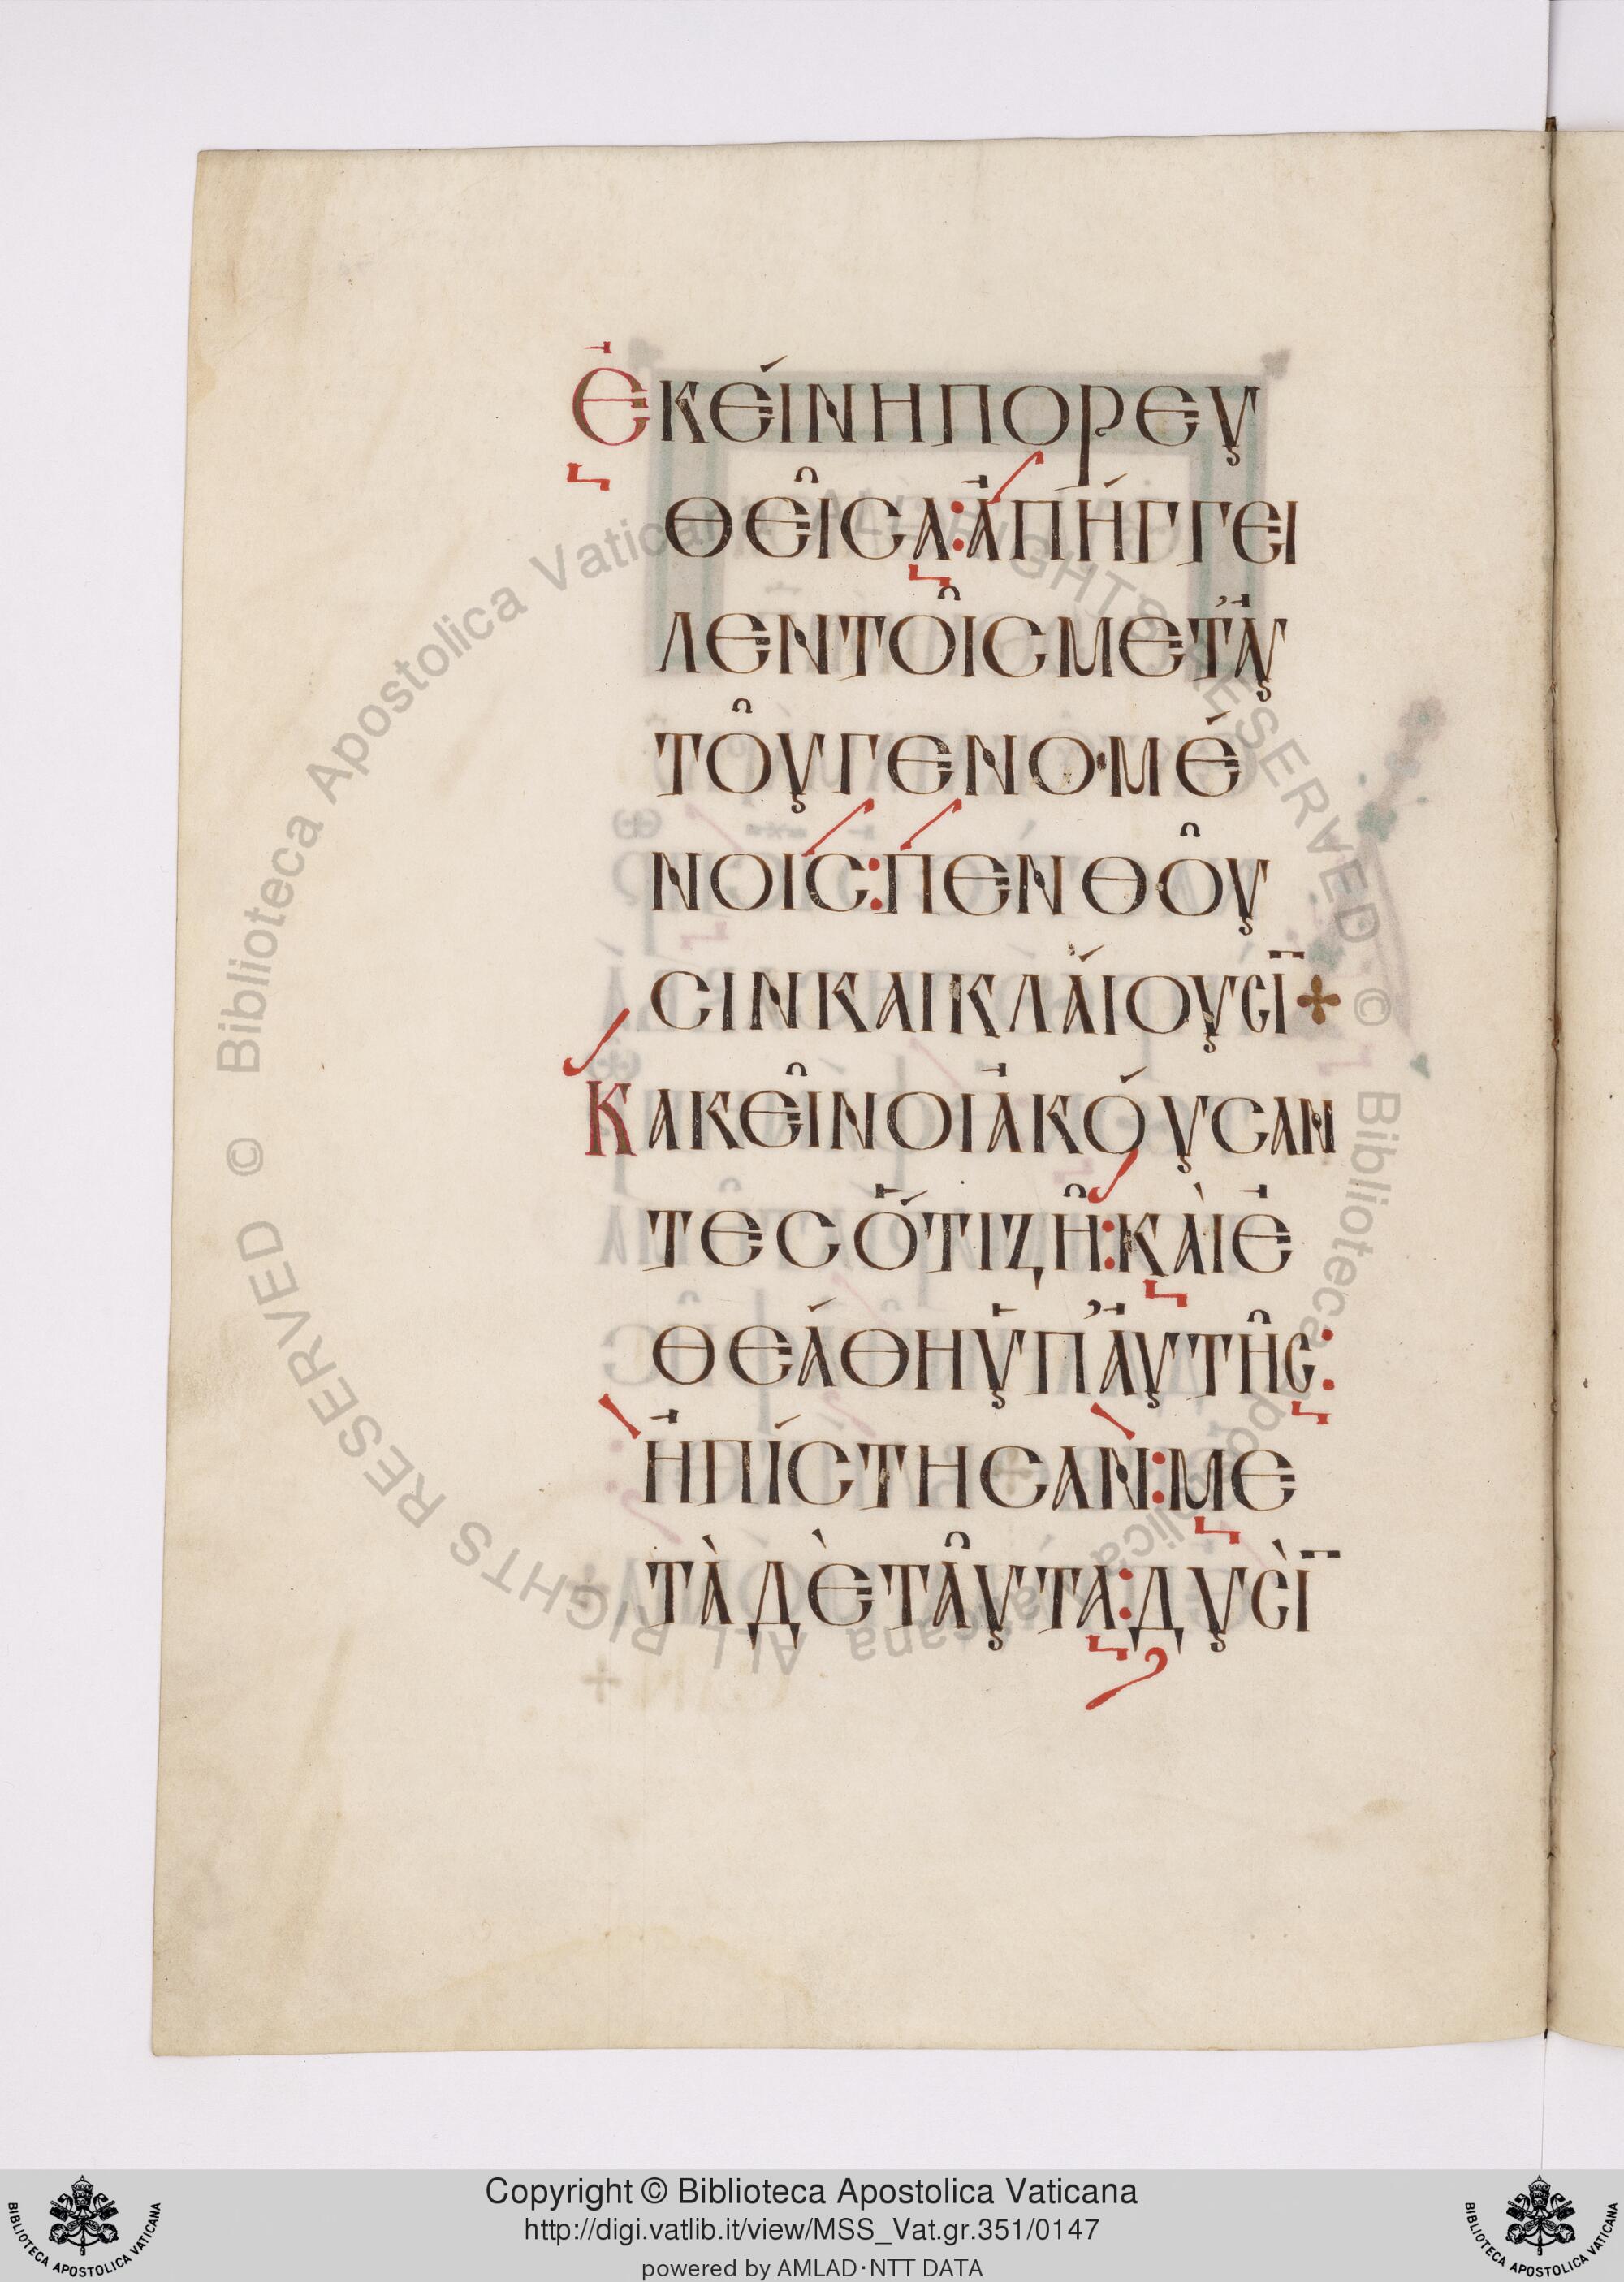 Ἐκείνη πορευ
θεῖσα: ἀπήγγει
λεν τοῖς μετ' αυ
τοῦ γενομέ
νοις: πενθοῦ
σιν καὶ κλαίουσῑ +
Κακεῖνοι ἀκούσαν
τες ὅτι ζῆ: καὶ ἐ
θεάθη ὑπ' αὐτῆς:
ἠπίστησαν: με
τὰ δὲ ταῦτα: δυσὶ̄
Biblioteca Apostolica Vaticana ALL RIGHTS RESERVED ©
Biblioteca Apostolica Vaticana ALL RIGHTS RESERVED ©
Copyright © Biblioteca Apostolica Vaticana
http://digi.vatlib.it/view/MSS_Vat.gr.351/0147
powered by AMLAD·NTT DATA
BIBLIOTECA APOSTOLICA VATICANA
BIBLIOTECA APOSTOLICA VATICANA